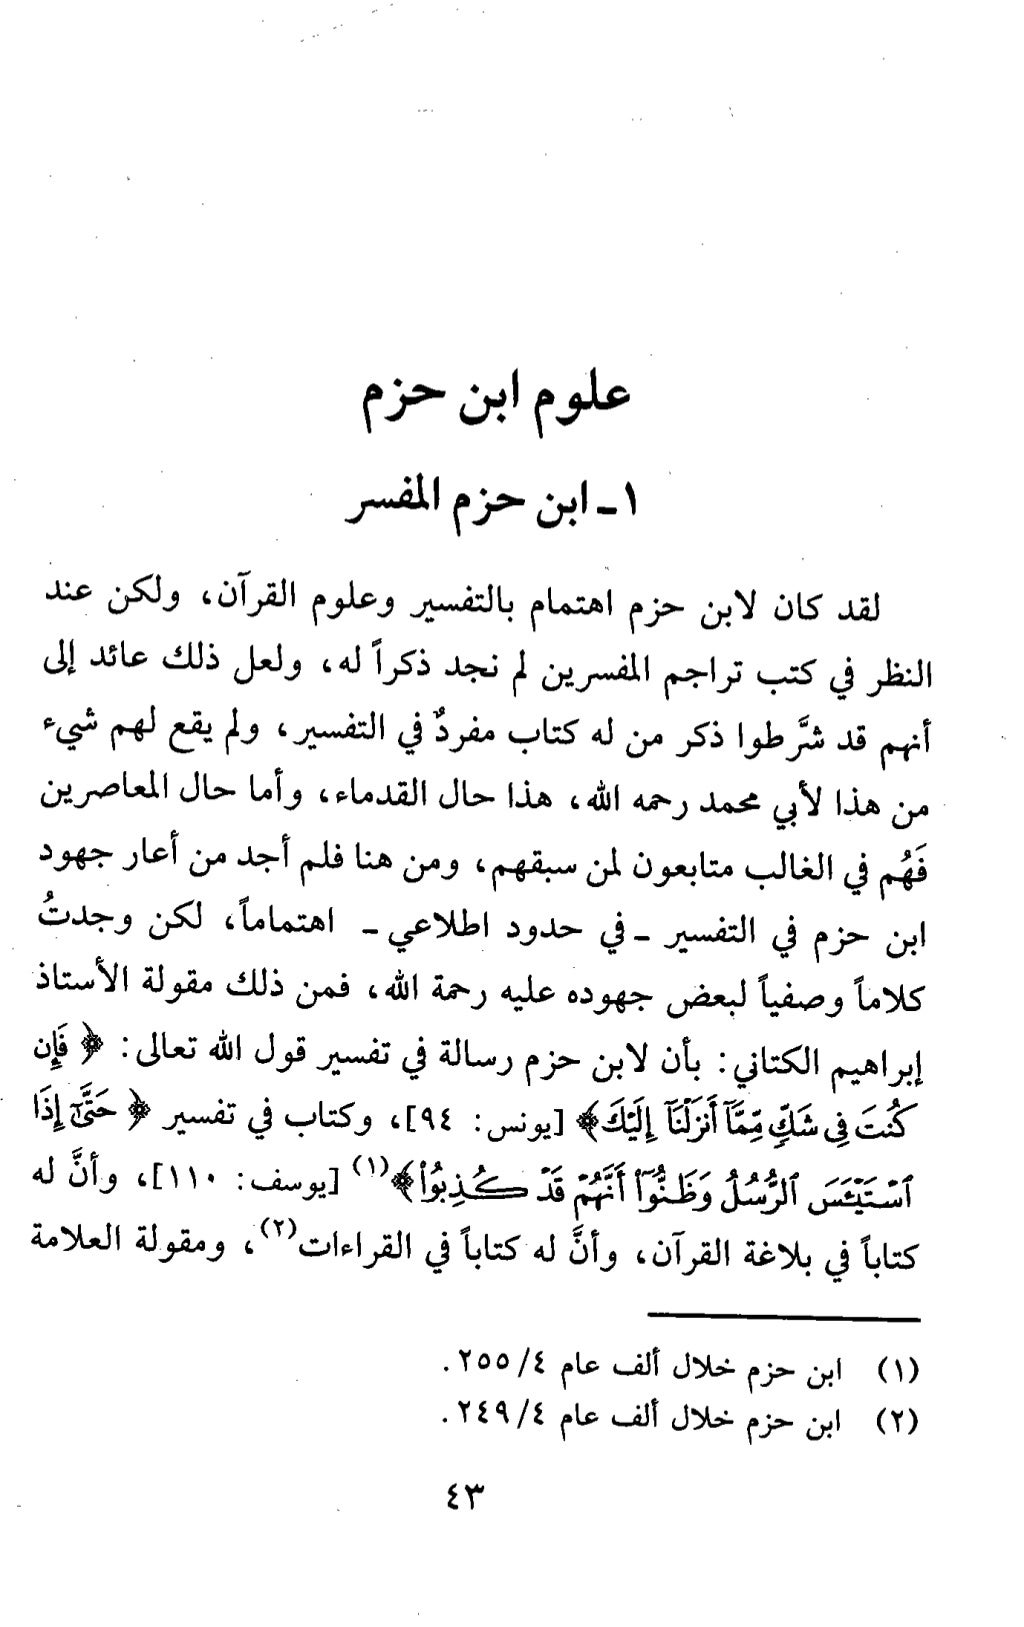 علوم ابن حزم
١ - ابن حزم المفسر
لقد كان لابن حزم اهتمام بالتفسير وعلوم القرآن، ولكن عند
النظر في كتب تراجم المفسرين لم نجد ذكراً له، ولعل ذلك عائد إلى
أنهم قد شرَّطوا ذكر من له كتاب مفردٌ في التفسير، ولم يقع لهم شيء
من هذا لأبي محمد رحمه الله، هذا حال القدماء، وأما حال المعاصرين
فَهُم في الغالب متابعون لمن سبقهم، ومن هنا فلم أجد من أعار جهود
ابن حزم في التفسير - في حدود اطلاعي - اهتماماً، لكن وجدتُ
كلاماً وصفياً لبعض جهوده عليه رحمة الله، فمن ذلك مقولة الأستاذ
إبراهيم الكتاني: بأن لابن حزم رسالة في تفسير قول الله تعالى: ﴿فَإِن
كُنتَ فِي شَكٍّ مِّمَّآ أَنزَلْنَآ إِلَيْكَ﴾ [يونس: ٩٤]، وكتاب في تفسير ﴿حَتَّىٰٓ إِذَا
ٱسْتَيْـَٔسَ ٱلرُّسُلُ وَظَنُّوٓا۟ أَنَّهُمْ قَدْ كُذِبُوا۟﴾(١) [يوسف: ١١٠]، وأنَّ له
كتاباً في بلاغة القرآن، وأنَّ له كتاباً في القراءات(٢)، ومقولة العلامة
(١) ابن حزم خلال ألف عام ٤/ ٢٥٥.
(٢) ابن حزم خلال ألف عام ٤/ ٢٤٩.
٤٣